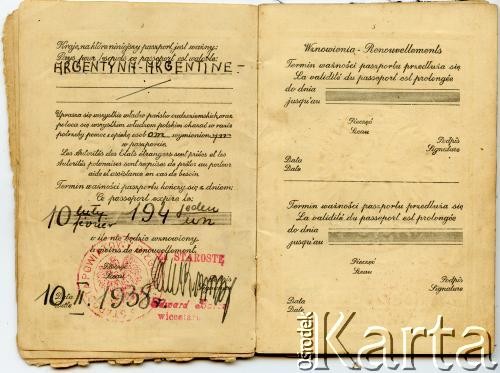 Kraje, na które niniejszy paszport jest ważny:
Pays pour lesquels ce passeport est valable:
ARGENTYNA-ARGENTINE-
Uprasza się wszystkie władze państw cudzoziemskich, oraz
poleca się wszystkim władzom polskim okazać w razie
potrzeby pomoc i opiekę osobom wymienionym
w paszporcie.
Les Autorités des Etats étrangers sont priées et les
Autorités polonaises sont requises de prêter au porteur
aide et assistance en cas de besoin.
Termin ważności paszportu kończy się z dniem:
Ce passeport expire le:
10 luty 194 jeden
février un
o ile nie będzie wznowiony.
à moins de renouvellement.
Pieczęć
Sceau
Za STAROSTĘ
10 II 1938
Data
Date
Edward
wicestarosta
Wznowienia - Renouvellements
Termin ważności paszportu przedłuża się
La validité du passeport est prolongée
do dnia
jusqu'au
Pieczęć
Sceau
Podpis
Signature
Data
Date
Termin ważności paszportu przedłuża się
La validité du passeport est prolongée
do dnia
jusqu'au
Pieczęć
Sceau
Podpis
Signature
Data
Date
ośrodek
Karta